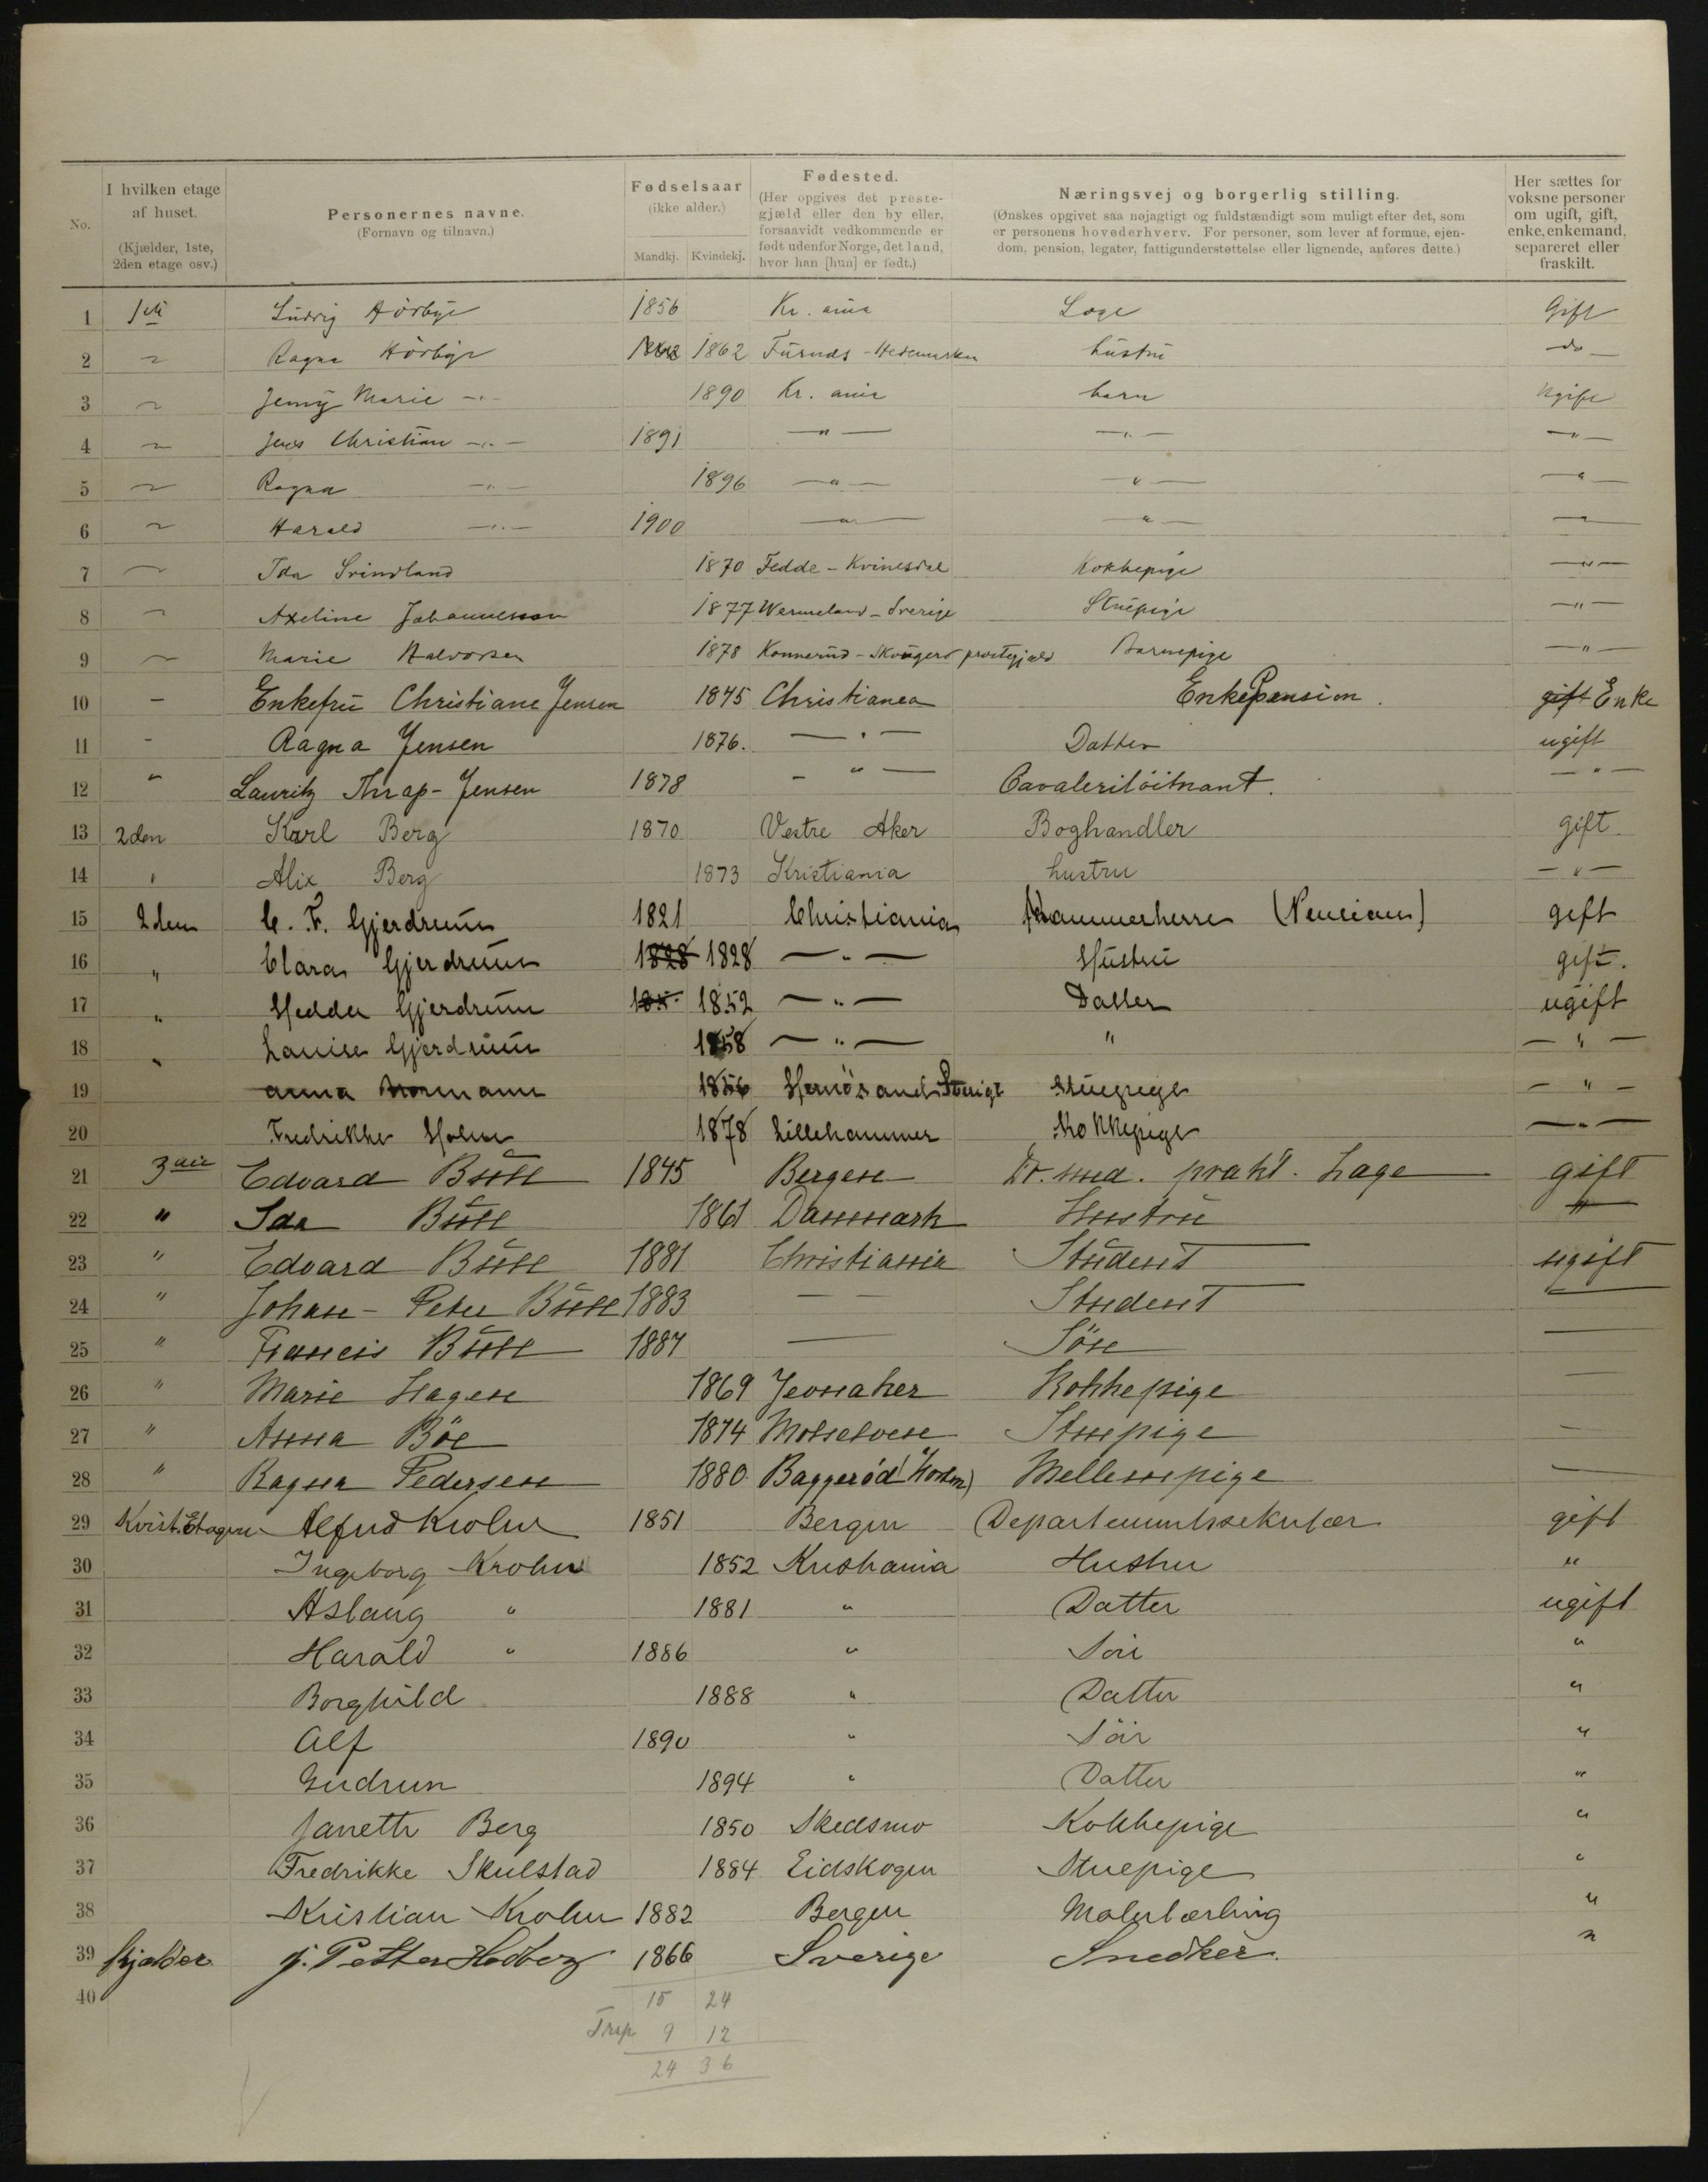 No. I hvilken etage af huset. (Kjælder, 1ste, 2den etage osv.) Personernes navne. (Fornavn og tilnavn.) Fødselsaar (ikke alder.) Mandkj. Kvindekj. Fødested. (Her opgives det prestegjæld eller den by eller, forsaavidt vedkommende er født udenfor Norge, det land, hvor han [hun] er født.) Næringsvej og borgerlig stilling. (Ønskes opgivet saa nøjagtigt og fuldstændigt som muligt efter det, som er personens hovederhverv. For personer, som lever af formue, ejendom, pension, legater, fattigunderstøttelse eller lignende, anføres dette.) Her sættes for voksne personer om ugift, gift, enke, enkemand, separeret eller fraskilt.
1 1ste Ludvig Hörbye 1856 Kr. ania Læge Gift
2 " Ragna Hörbye 1862 Furnes - Hedemarken hustru do
3 " Jenny Marie -"- 1890 Kr. ania barn Ugift
4 " Jens Christian -"- 1891 -"- -"- -"-
5 " Ragna -"- 1896 -"- -"- -"-
6 " Harald -"- 1900 -"- -"- -"-
7 " Ida Svindland 1870 Fedde - Kvinesdal Kokkepige -"-
8 " Axeline Johannesson 1877 Wermeland - Sverige Stuepige -"-
9 " Marie Halvorsen 1878 Konnerud - Skouger prestegjæld Barnepige -"-
10 - Enkefru Christiane Jensen 1845 Christiania Enkepension. gift Enke
11 - Ragna Jensen 1876. -"- Datter ugift
12 " Lauritz Thrap-Jensen 1878 -"- Cavaleriløitnant. -"-
13 2den Karl Berg 1870 Vestre Aker Boghandler gift
14 " Alix Berg 1873 Kristiania hustru -"-
15 2den C. F. Gjerdrum 1821 Christiania Kammerherre (Pension) gift
16 " Clara Gjerdrum 1828 1828 -"- Hustru gift.
17 " Hedda Gjerdrum 185 1852 -"- Datter ugift
18 " Louise Gjerdrum 1858 -"- " -"-
19 Anna Normann 1856 Hernösand Sverige Stuepige -"-
20 Fredrikke Holm 1878 Lillehammer Kokkepige -"-
21 3die Edvard Bull 1845 Bergen Dr. med. prakt. Læge gift
22 " Ida Bull 1861 Danmark Hustru "
23 " Edvard Bull 1881 Christiania Student ugift
24 " Johan-Peter Bull 1883 — — Student —
25 " Francis Bull 1887 — Søn —
26 " Marie Hagen 1869 Jevnaker Kokkepige —
27 " Anna Böe 1874 Stuepige —
28 " Ragna Pedersen 1880 (Horten) Mellempige —
29 Kvist Etagen Alfred Krohn 1851 Bergen Departementssekretær gift
30 Ingeborg Krohn 1852 Kristiania Hustru "
31 Aslaug " 1881 " Datter ugift
32 Harald " 1886 " Søn "
33 Borghild 1888 " Datter "
34 Alf 1890 " Søn "
35 Gudrun 1894 " Datter "
36 Janette Berg 1850 Skedsmo Kokkepige "
37 Fredrikke Skulstad 1884 Eidskogen Stuepige "
38 Kristian Krohn 1882 Bergen Malerlærling "
39 Kjælder J. Petter Hedberg 1866 Sverige Snedker. "
40
15 24
Trsp. 9 12
24 36